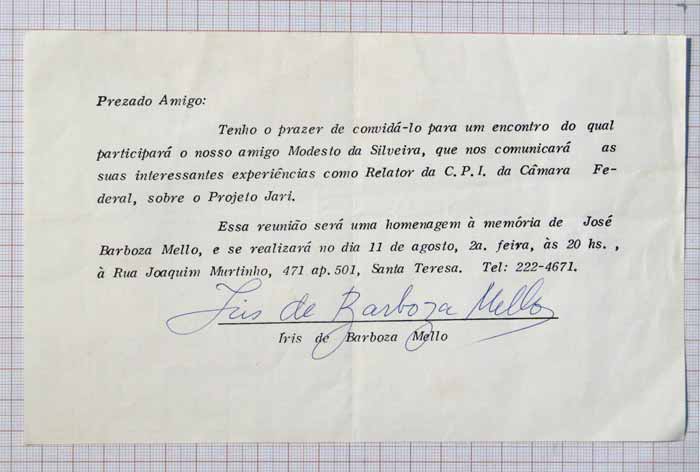 Prezado Amigo:
Tenho o prazer de convidá-lo para um encontro do qual
participará o nosso amigo Modesto da Silveira, que nos comunicará as
suas interessantes experiências como Relator da C.P.I. da Câmara Fe-
deral, sobre o Projeto Jari.
Essa reunião será uma homenagem à memória de José
Barboza Mello, e se realizará no dia 11 de agosto, 2a. feira, às 20 hs.,
à Rua Joaquim Murtinho, 471 ap.501, Santa Teresa. Tel: 222-4671.
Iris de Barboza Mello
Iris de Barboza Mello